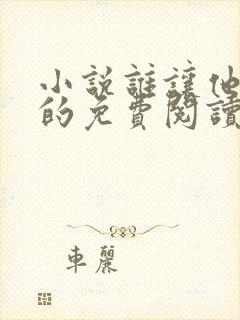 小說誰讓他
的免費閱讀
車麗